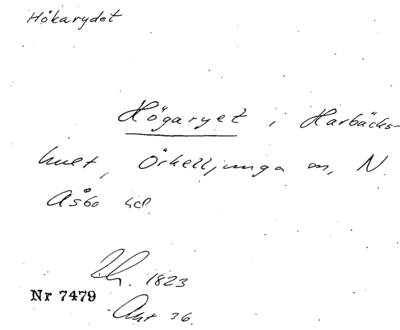 Hökarydet
Högaryet i Harbäcks-
hult, Örkelljunga sn, N.
Åsbo hd.
Lh. 1823
Nr 7479
Akt 36.